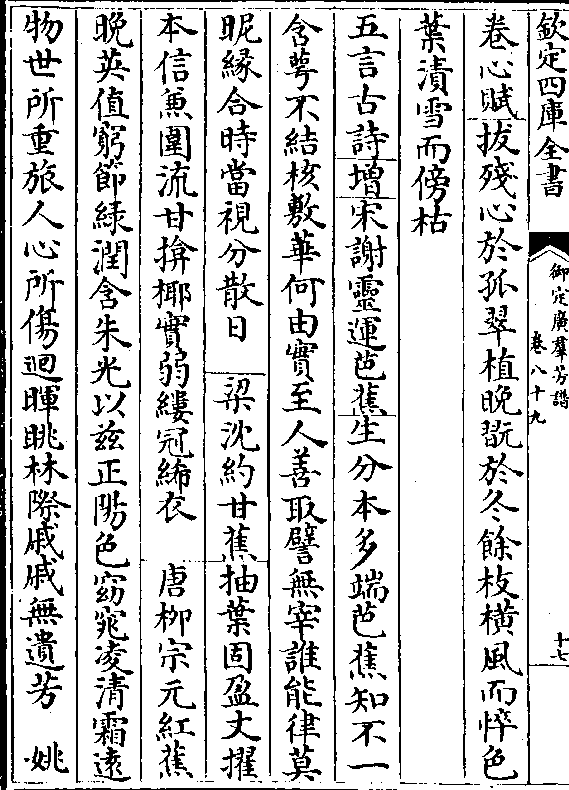 欽定四庫全書
御定廣羣芳譜
卷八十九
十七
卷心賦拔殘心於孤翠植晚翫於冬餘枝橫風而悴色
葉漬雪而傍枯
五言古詩增宋謝靈運芭蕉生分本多端芭蕉知不一
含萼不結核敷華何由實至人善取譬無宰誰能律莫
昵緣合時當視分散日　梁沈約甘蕉抽葉固盈丈擢
本信兼圍流甘揜椰實弱縷冠絺衣　唐柳宗元紅蕉
晚英值窮節綠潤含朱光以兹正陽色窈窕凌清霜遠
物世所重旅人心所傷迴暉眺林際戚戚無遺芳　姚